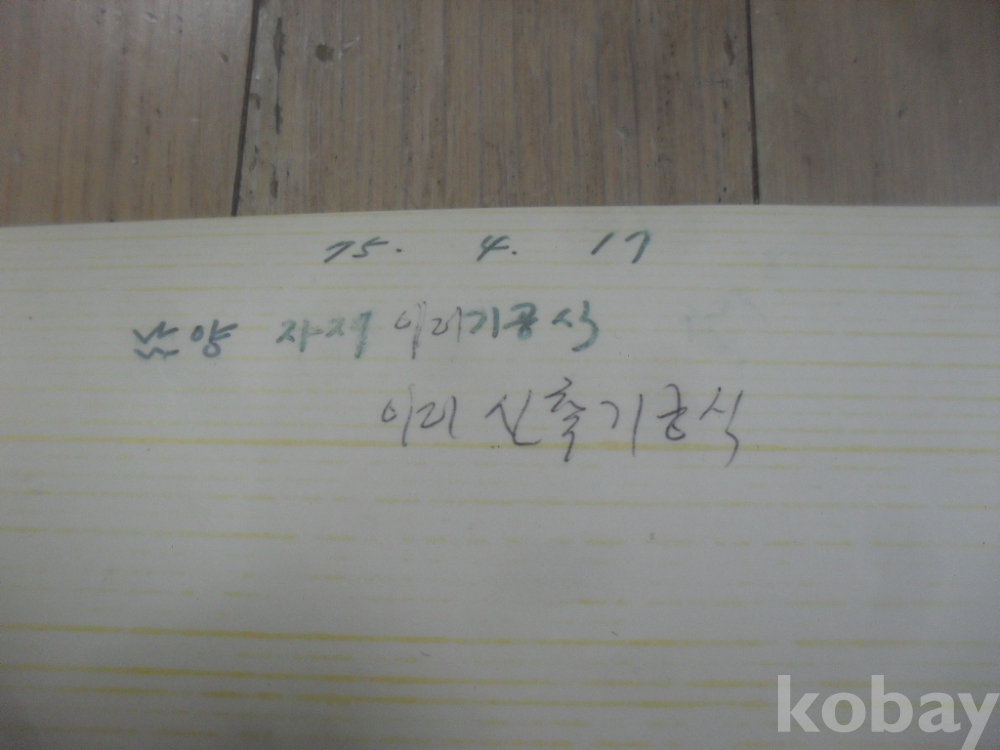 75. 4. 17
쌍양 자재 이리기공식
이리 신축기공식
kobay